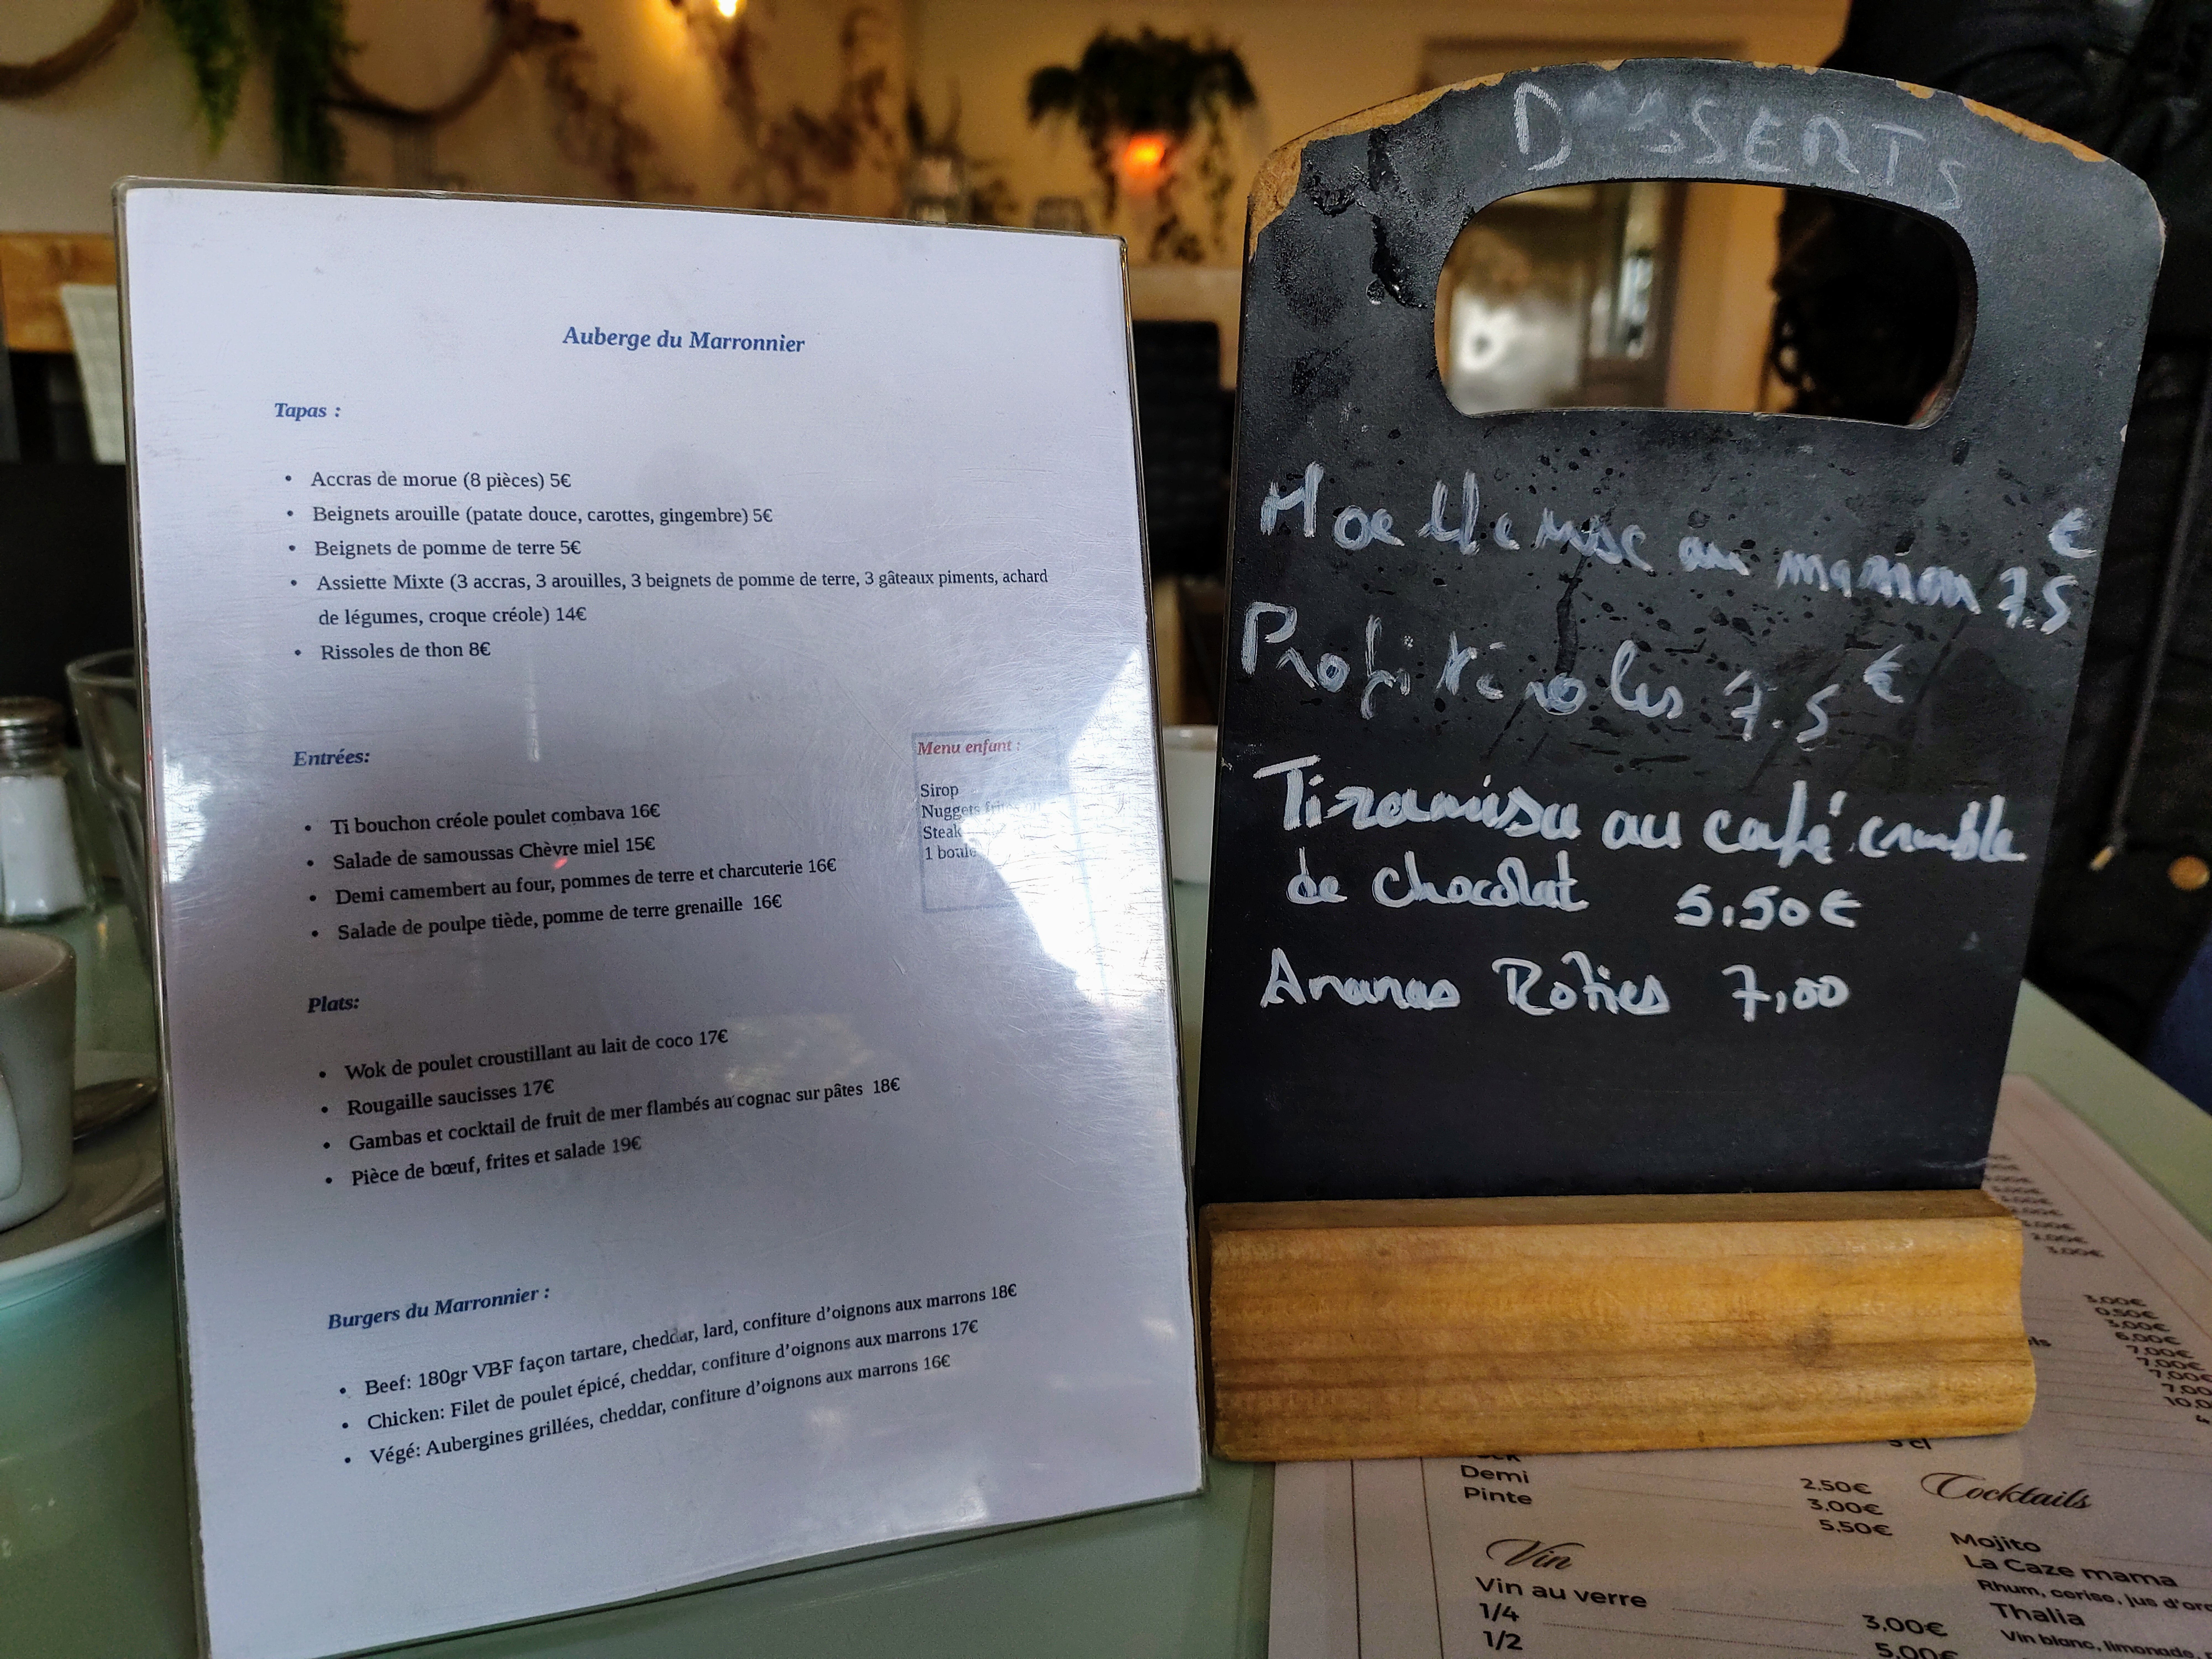 Auberge du Marronnier
Tapas :
• Accras de morue (8 pièces) 5€
• Beignets arouille (patate douce, carottes, gingembre) 5€
• Beignets de pomme de terre 5€
• Assiette Mixte (3 accras, 3 arouilles, 3 beignets de pomme de terre, 3 gâteaux piments, achard
de légumes, croque créole) 14€
• Rissoles de thon 8€
Entrées:
• Ti bouchon créole poulet combava 16€
• Salade de samoussas Chèvre miel 15€
• Demi camembert au four, pommes de terre et charcuterie 16€
• Salade de poulpe tiède, pomme de terre grenaille 16€
Menu enfant :
Sirop
Nuggets frites
Steak
1 boule
Plats:
• Wok de poulet croustillant au lait de coco 17€
• Rougaille saucisses 17€
• Gambas et cocktail de fruit de mer flambés au cognac sur pâtes 18€
• Pièce de bœuf, frites et salade 19€
Burgers du Marronnier :
• Beef: 180gr VBF façon tartare, cheddar, lard, confiture d'oignons aux marrons 18€
• Chicken: Filet de poulet épicé, cheddar, confiture d'oignons aux marrons 17€
• Végé: Aubergines grillées, cheddar, confiture d'oignons aux marrons 16€
DESSERTS
Moelleuse au marron 7.5 €
Profiteroles 7.5 €
Tiramisu au café crumble
de chocolat 5,50€
Ananas Roties 7,00
3,00€
0,50€
3,00€
6,00€
7,00€
7,00€
7,00€
Demi 2,50€
Pinte 3,00€
5,50€
Vin
Vin au verre
1/4 3,00€
1/2 5,00€
Cocktails
Mojito
La Caze mama
Rhum, cerise, jus d'or
Thalia
Vin blanc, limonade,